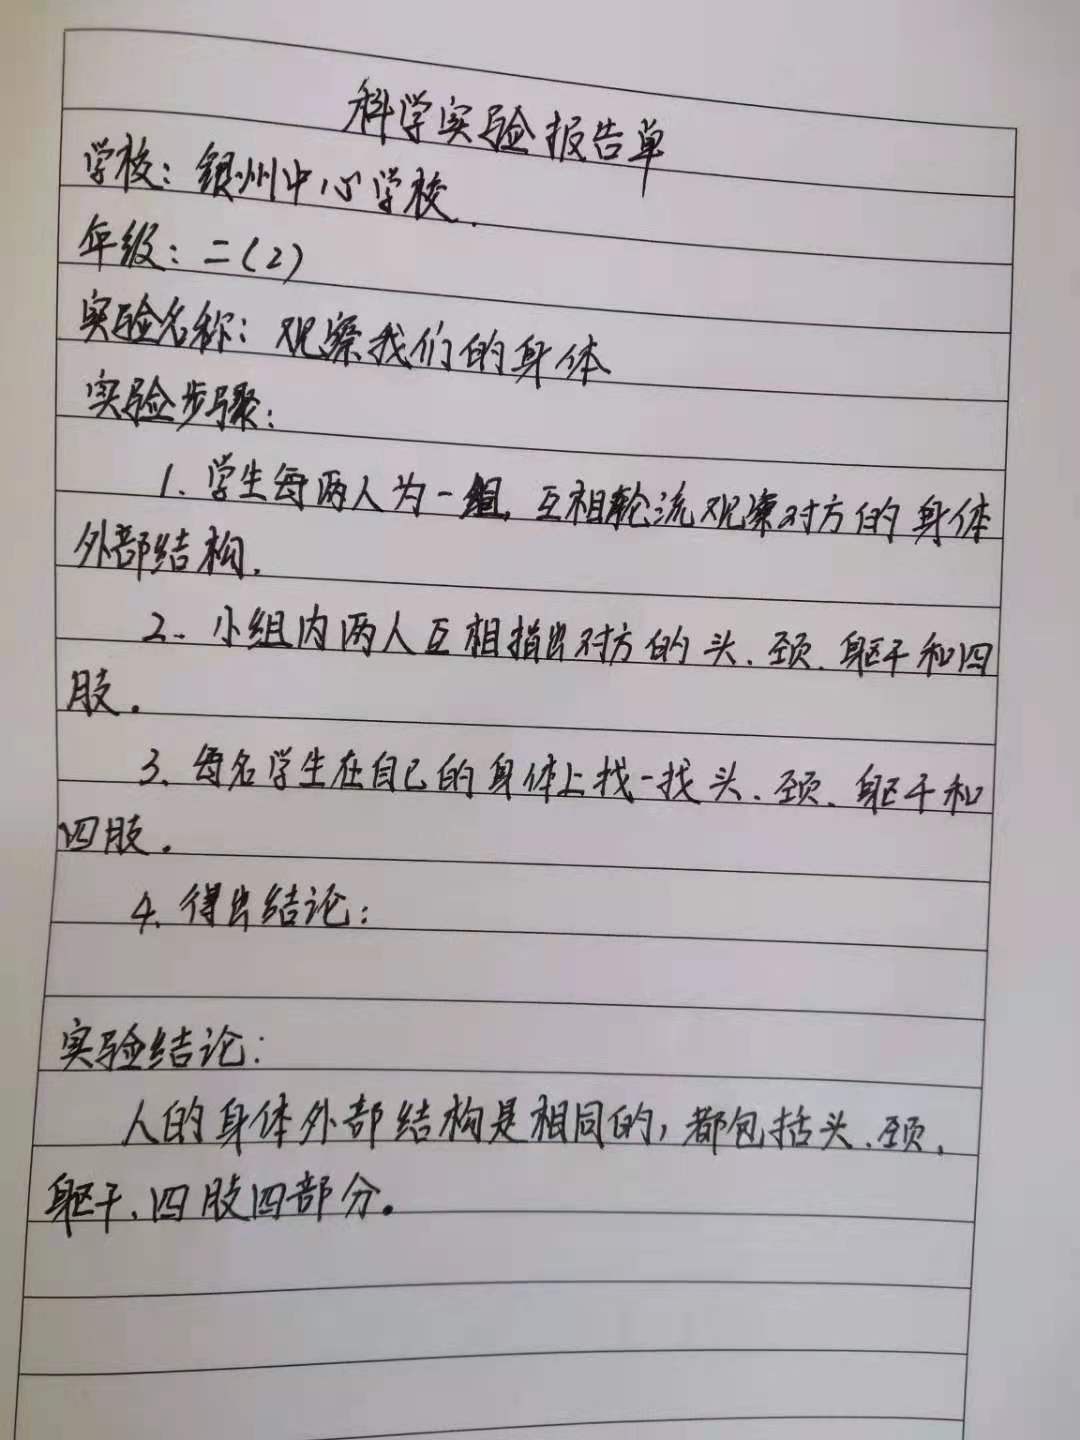 科学实验报告单
学校：银州中心学校.
年级：二(2)
实验名称：观察我们的身体
实验步骤：
1. 学生每两人为一组，互相轮流观察对方的身体
外部结构.
2. 小组内两人互相指出对方的头、颈、躯干和四
肢.
3. 每名学生在自己的身体上找一找头、颈、躯干和
四肢.
4. 得出结论：
实验结论：
人的身体外部结构是相同的，都包括头、颈、
躯干、四肢四部分。